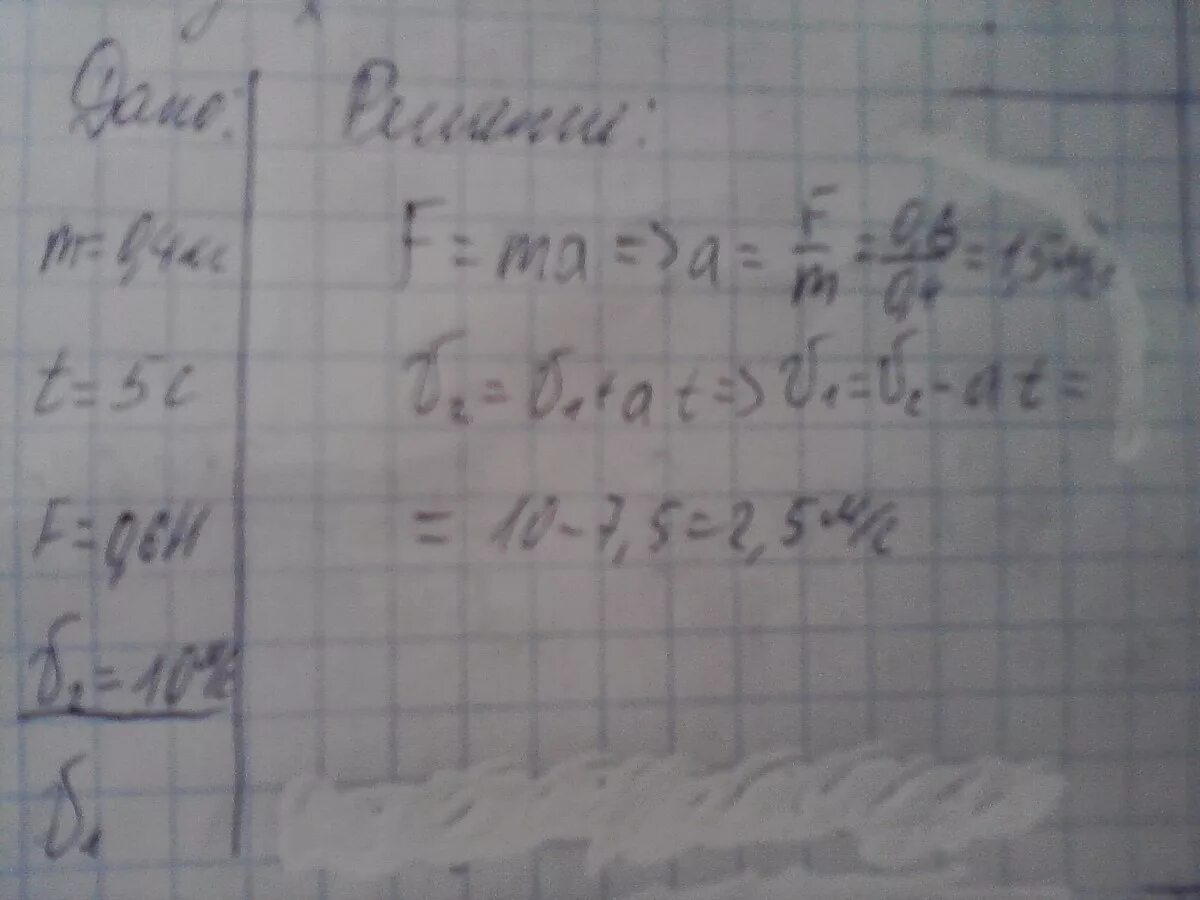 Дано:
m = 0,4 кг
t = 5 с
F = 0,6 Н
υ₂ = 10 м/с
υ₁
Решение:
F = ma => a = F/m = 0,6/0,4 = 1,5 м/с
υ₂ = υ₁ + a t => υ₁ = υ₂ - a t =
= 10 - 7,5 = 2,5 м/с